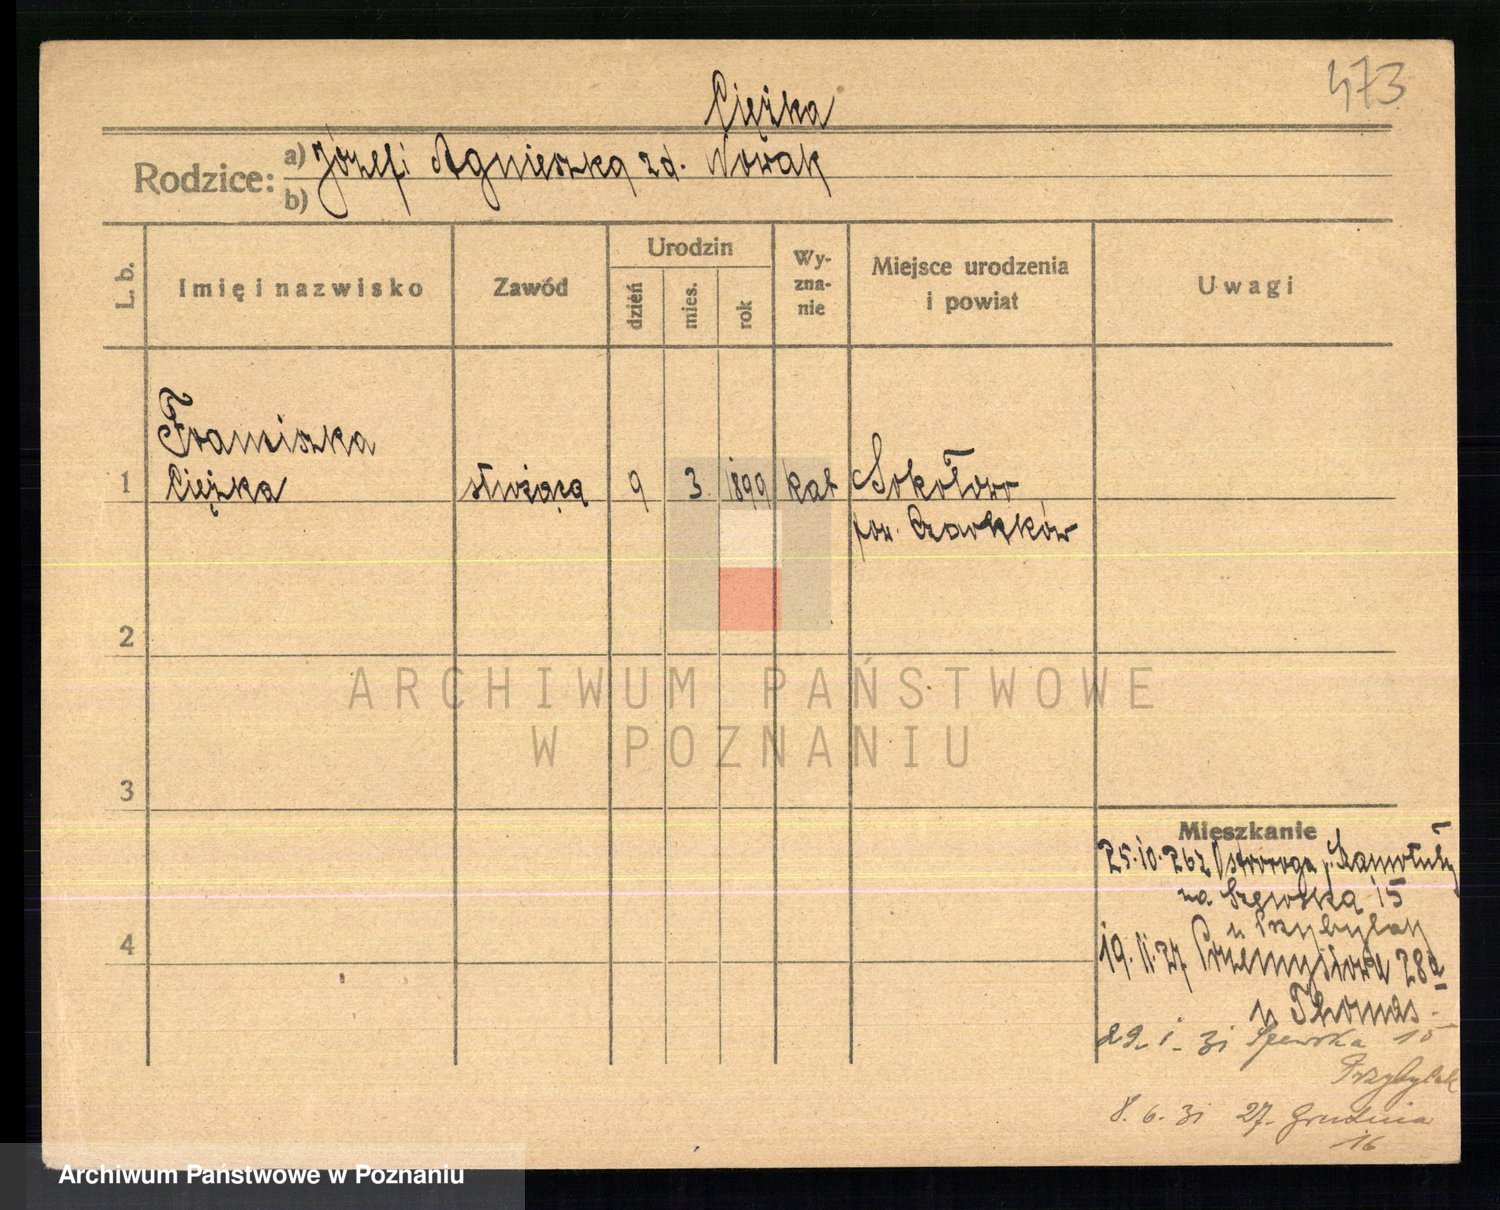 473
Ciężka
Rodzice: a) Józef i Agnieszka zd. Nowak
b)
L. b. Imię i nazwisko Zawód Urodzin Wy-zna-nie Miejsce urodzenia i powiat Uwagi
dzień mies. rok
Franciszka
1 Ciężka służąca 9 3 1899 kat Sokołowo
pow. Czarnków
2
ARCHIWUM PAŃSTWOWE
W POZNANIU
3
Mieszkanie
25.10.26 z Ostroroga, p. Szamotuły
na 15
u Przybylak
4
19.11.27 Przemysłowa 28a
u Thomas.
29. i. 31 15
Przybylak
8. 6. 31 27. Grudnia
16
Archiwum Państwowe w Poznaniu